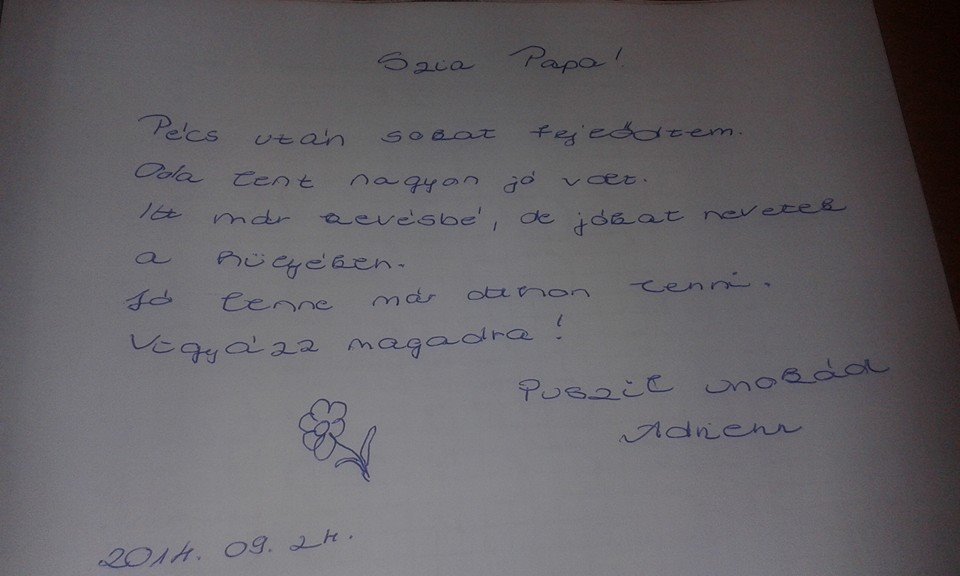 Szia Papa!
Pécs után sokat fejlődtem.
Oda lent nagyon jó volt.
Itt már kevésbé, de jókat nevetek
a hülyéken.
Jó lenne már otthon lenni.
Vigyázz magadra!
Puszil unokád
Adrienn
2014. 09. 24.